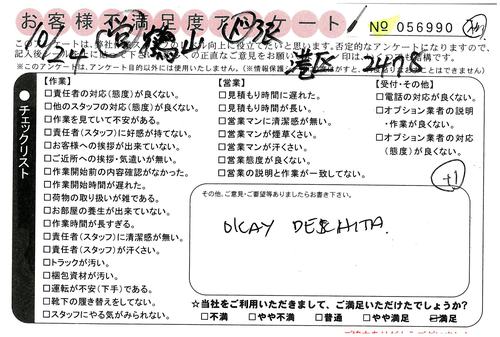 お客様不満足度アンケート
№ 056990
10/24 営 橋山
港区 2478
※このアンケートは、アンケート目的以外には使用いたしません。
チェックリスト
【作業】
□責任者の対応(態度)が良くない。
□他のスタッフの対応(態度)が良くない。
□作業を見ていて不安がある。
□責任者(スタッフ)に好感が持てない。
□お客様への挨拶が出来ていない。
□ご近所への挨拶・気遣いが無い。
□作業開始前の内容確認がなかった。
□作業開始時間が遅れた。
□荷物の取り扱いが雑である。
□お部屋の養生が出来ていない。
□作業時間が長すぎる。
□責任者(スタッフ)に清潔感が無い。
□責任者(スタッフ)が汗くさい。
□トラックが汚い。
□梱包資材が汚い。
□運転が不安(下手)である。
□靴下の履き替えをしてない。
□スタッフにやる気がみられない。
【営業】
□見積もり時間に遅れた。
□見積もり時間が長い。
□営業マンに清潔感が無い。
□営業マンが煙草くさい。
□営業マンが汗くさい。
□営業態度が良くない。
□営業の説明と作業が一致してない。
【受付・その他】
□電話の対応が良くない。
□オプション業者の説明
・作業が良くない。
□オプション業者の対応
(態度)が良くない。
+1
その他、ご意見・ご要望等ありましたらお書き下さい。
OKAY DESHITA.
☆当社をご利用いただきまして、ご満足いただけたでしょうか?
□不満 □やや不満 □普通 □やや満足 □満足